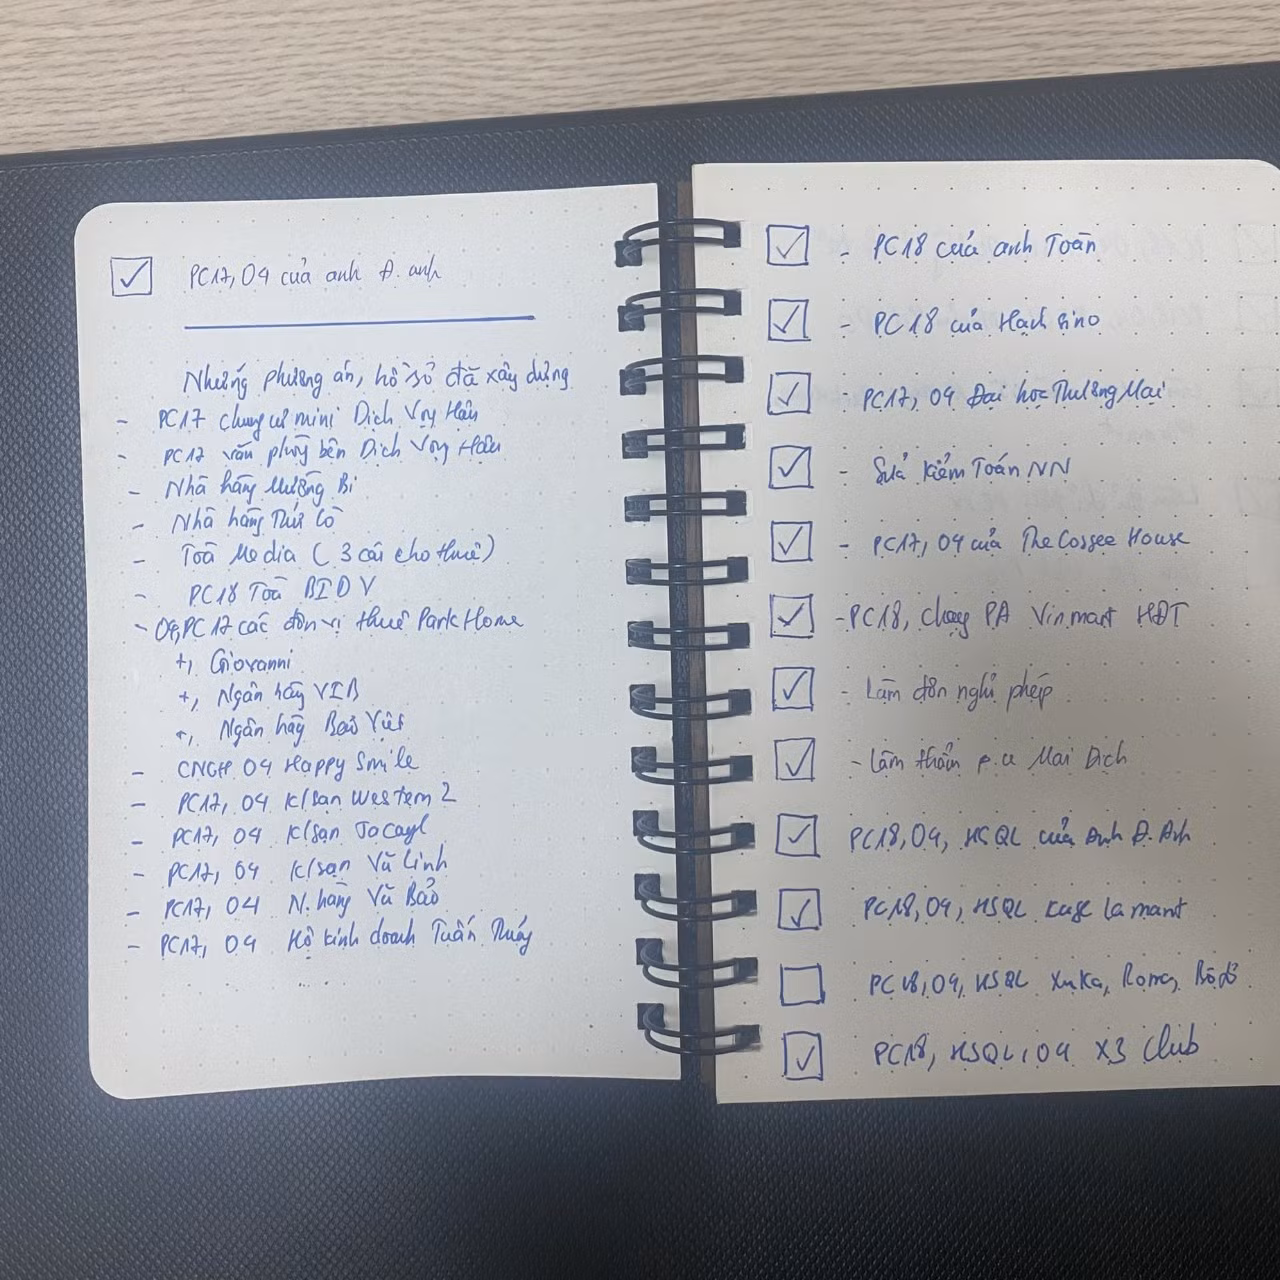 PC17, 04 của anh Đ. anh
Những phương án, hồ sơ đã xây dựng
- PC17 chung cư mini Dịch Vọng Hậu
- PC17 văn phòng bên Dịch Vọng Hậu
- Nhà hàng Mường Bi
- Nhà hàng Thứ Lô
- Toà Media ( 3 cái cho thuê )
- PC18 Toà BIDV
- 04, PC17 các đơn vị thuê Park Home
+, Giovanni
+, Ngân hàng VIB
+, Ngân hàng Bảo Việt
- CNCH 04 Happy Smile
- PC17, 04 K/sạn Western 2
- PC17, 04 K/sạn
- PC17, 04 K/sạn Vũ Linh
- PC17, 04 N. hàng Vũ Bảo
- PC17, 04 Hộ kinh doanh Tuấn Thúy
- PC18 của anh Toàn
- PC18 của Hach Sino
- PC17, 04 Đại học Thương Mại
- Sửa Kiểm Toán NN
- PC17, 04 của The Coffee House
- PC18, PA Vinmart HĐT
- Làm đơn nghỉ phép
- Làm p.a Mai Dịch
PC18, 04, HSQL của Anh Đ. Anh
PC18, 04, HSQL
PC18, 04, HSQL XuKa, Rome, Bồ đề
PC18, HSQL, 04 X3 Club